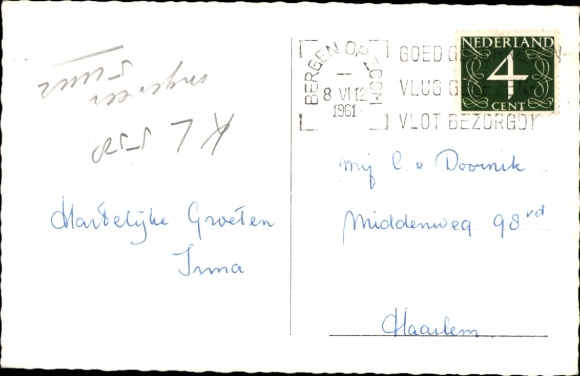 BERGEN OP ZOOM
8 VI 12
1961
GOED
VLUG
VLOT BEZORGD!
NEDERLAND
4
CENT
Hartelijke Groeten
Irma
Mej C. v Doornik
Middenweg 98 rd
Haarlem.